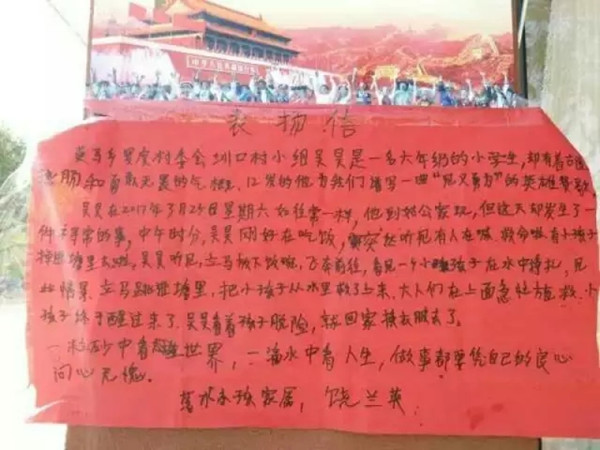 表扬信
英马乡里度村委会圳口村小组吴昊是一名六年级的小学生,却有着古道
热肠和勇敢无畏的气概,12岁的他为我们谱写一曲"见义勇为"的英雄赞歌
吴昊在2017年3月25日星期六如往常一样,他到外公家玩,但这天却发生了一
件不寻常的事,中午时分,吴昊刚好在吃饭,突然听见有人在喊救命啦有小孩子
掉进塘里去啦,吴昊听见,立马放下饭碗,飞奔前往,看见一个小孩子在水中挣扎,见
此情景立马跳进塘里,把小孩子从水里救了上来,大人们在上面急忙施救,小
孩子终于醒过来了,吴昊看着孩子脱险,就回家换衣服去了。
一粒砂中看世界,一滴水中看人生,做事都要凭自己的良心
问心无愧.
落水小孩家属,饶兰英